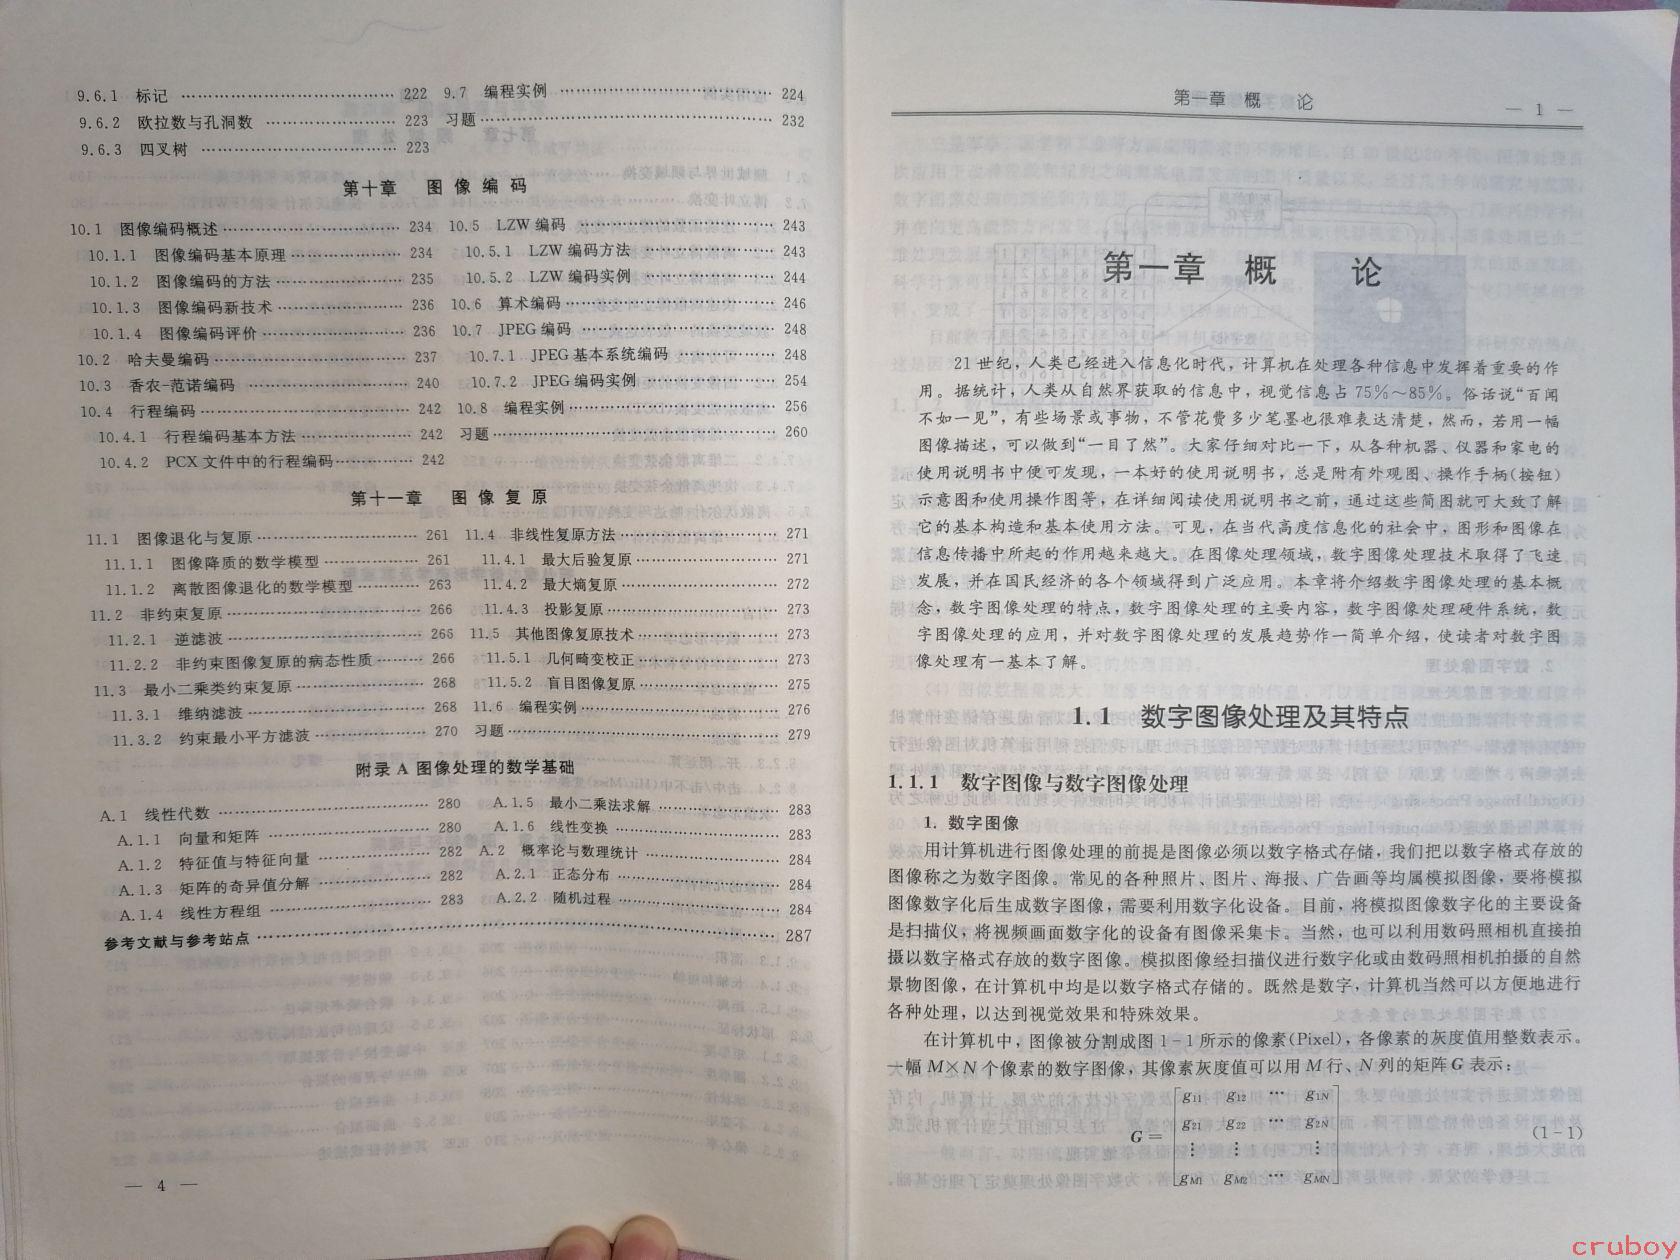 9.6.1 标记 …… 222
9.6.2 欧拉数与孔洞数 …… 223
9.6.3 四叉树 …… 223
9.7 编程实例 …… 224
习题 …… 232
第十章 图像编码
10.1 图像编码概述 …… 234
10.1.1 图像编码基本原理 …… 234
10.1.2 图像编码的方法 …… 235
10.1.3 图像编码新技术 …… 236
10.1.4 图像编码评价 …… 236
10.2 哈夫曼编码 …… 237
10.3 香农-范诺编码 …… 240
10.4 行程编码 …… 242
10.4.1 行程编码基本方法 …… 242
10.4.2 PCX 文件中的行程编码 …… 242
10.5 LZW 编码 …… 243
10.5.1 LZW 编码方法 …… 243
10.5.2 LZW 编码实例 …… 244
10.6 算术编码 …… 246
10.7 JPEG 编码 …… 248
10.7.1 JPEG 基本系统编码 …… 248
10.7.2 JPEG 编码实例 …… 254
10.8 编程实例 …… 256
习题 …… 260
第十一章 图像复原
11.1 图像退化与复原 …… 261
11.1.1 图像降质的数学模型 …… 261
11.1.2 离散图像退化的数学模型 …… 263
11.2 非约束复原 …… 266
11.2.1 逆滤波 …… 266
11.2.2 非约束图像复原的病态性质 …… 266
11.3 最小二乘类约束复原 …… 268
11.3.1 维纳滤波 …… 268
11.3.2 约束最小平方滤波 …… 270
11.4 非线性复原方法 …… 271
11.4.1 最大后验复原 …… 271
11.4.2 最大熵复原 …… 272
11.4.3 投影复原 …… 273
11.5 其他图像复原技术 …… 273
11.5.1 几何畸变校正 …… 273
11.5.2 盲目图像复原 …… 275
11.6 编程实例 …… 276
习题 …… 279
附录 A 图像处理的数学基础
A.1 线性代数 …… 280
A.1.1 向量和矩阵 …… 280
A.1.2 特征值与特征向量 …… 282
A.1.3 矩阵的奇异值分解 …… 282
A.1.4 线性方程组 …… 283
A.1.5 最小二乘法求解 …… 283
A.1.6 线性变换 …… 283
A.2 概率论与数理统计 …… 284
A.2.1 正态分布 …… 284
A.2.2 随机过程 …… 284
参考文献与参考站点 …… 287
— 4 —
第一章 概 论
— 1 —
第一章 概 论
21 世纪，人类已经进入信息化时代，计算机在处理各种信息中发挥着重要的作
用。据统计，人类从自然界获取的信息中，视觉信息占 75%～85%。俗话说“百闻
不如一见”，有些场景或事物，不管花费多少笔墨也很难表达清楚，然而，若用一幅
图像描述，可以做到“一目了然”。大家仔细对比一下，从各种机器、仪器和家电的
使用说明书中便可发现，一本好的使用说明书，总是附有外观图、操作手柄(按钮)
示意图和使用操作图等，在详细阅读使用说明书之前，通过这些简图就可大致了解
它的基本构造和基本使用方法。可见，在当代高度信息化的社会中，图形和图像在
信息传播中所起的作用越来越大。在图像处理领域，数字图像处理技术取得了飞速
发展，并在国民经济的各个领域得到广泛应用。本章将介绍数字图像处理的基本概
念，数字图像处理的特点，数字图像处理的主要内容，数字图像处理硬件系统，数
字图像处理的应用，并对数字图像处理的发展趋势作一简单介绍，使读者对数字图
像处理有一基本了解。
1.1 数字图像处理及其特点
1.1.1 数字图像与数字图像处理
1. 数字图像
用计算机进行图像处理的前提是图像必须以数字格式存储，我们把以数字格式存放的
图像称之为数字图像。常见的各种照片、图片、海报、广告画等均属模拟图像，要将模拟
图像数字化后生成数字图像，需要利用数字化设备。目前，将模拟图像数字化的主要设备
是扫描仪，将视频画面数字化的设备有图像采集卡。当然，也可以利用数码照相机直接拍
摄以数字格式存放的数字图像。模拟图像经扫描仪进行数字化或由数码照相机拍摄的自然
景物图像，在计算机中均是以数字格式存储的。既然是数字，计算机当然可以方便地进行
各种处理，以达到视觉效果和特殊效果。
在计算机中，图像被分割成图 1-1 所示的像素(Pixel)，各像素的灰度值用整数表示。
一幅 M×N 个像素的数字图像，其像素灰度值可以用 M 行、N 列的矩阵 G 表示：
g11 g12 ⋯ g1N
g21 g22 ⋯ g2N
G =
⋮ ⋮ ⋮
gM1 gM2 ⋯ gMN
(1-1)
cruboy